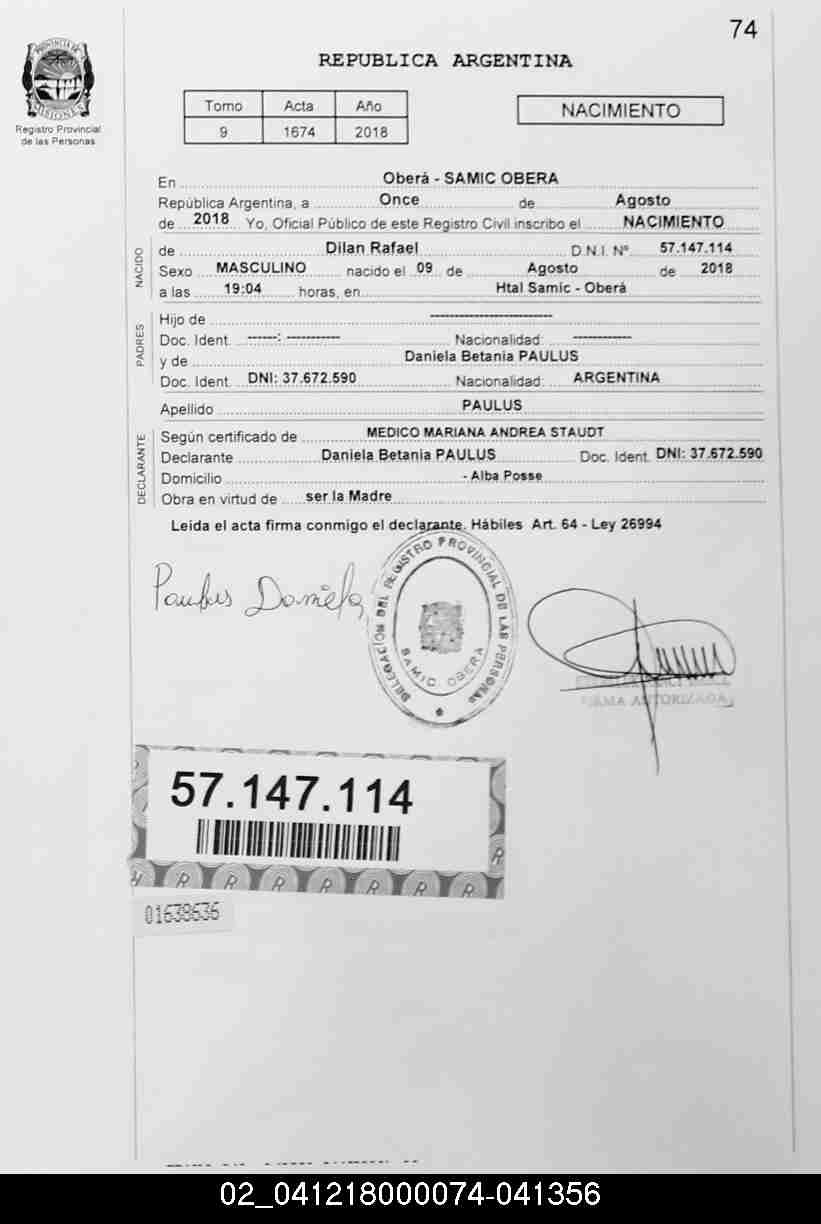 74
PROVINCIA DE
MISIONES
Registro Provincial
de las Personas
REPUBLICA ARGENTINA
Tomo Acta Año
9 1674 2018
NACIMIENTO
En Oberá - SAMIC OBERA
República Argentina, a Once de Agosto
de 2018 Yo, Oficial Público de este Registro Civil inscribo el NACIMIENTO
NACIDO
de Dilan Rafael D.N.I. Nº 57.147.114
Sexo MASCULINO nacido el 09 de Agosto de 2018
a las 19:04 horas, en Htal Samic - Oberá
PADRES
Hijo de -------------------------
Doc. Ident. ------: ----------- Nacionalidad: ------------
y de Daniela Betania PAULUS
Doc. Ident. DNI: 37.672.590 Nacionalidad: ARGENTINA
Apellido PAULUS
DECLARANTE
Según certificado de MEDICO MARIANA ANDREA STAUDT
Declarante Daniela Betania PAULUS Doc. Ident. DNI: 37.672.590
Domicilio - Alba Posse
Obra en virtud de ser la Madre
Leida el acta firma conmigo el declarante. Hábiles Art. 64 - Ley 26994
Paulus Daniela
DELEGACIÓN DEL REGISTRO PROVINCIAL DE LAS PERSONAS
SAMIC. OBERA
FIRMA AUTORIZADA
57.147.114
R R R R R R R R
01638636
02_041218000074-041356